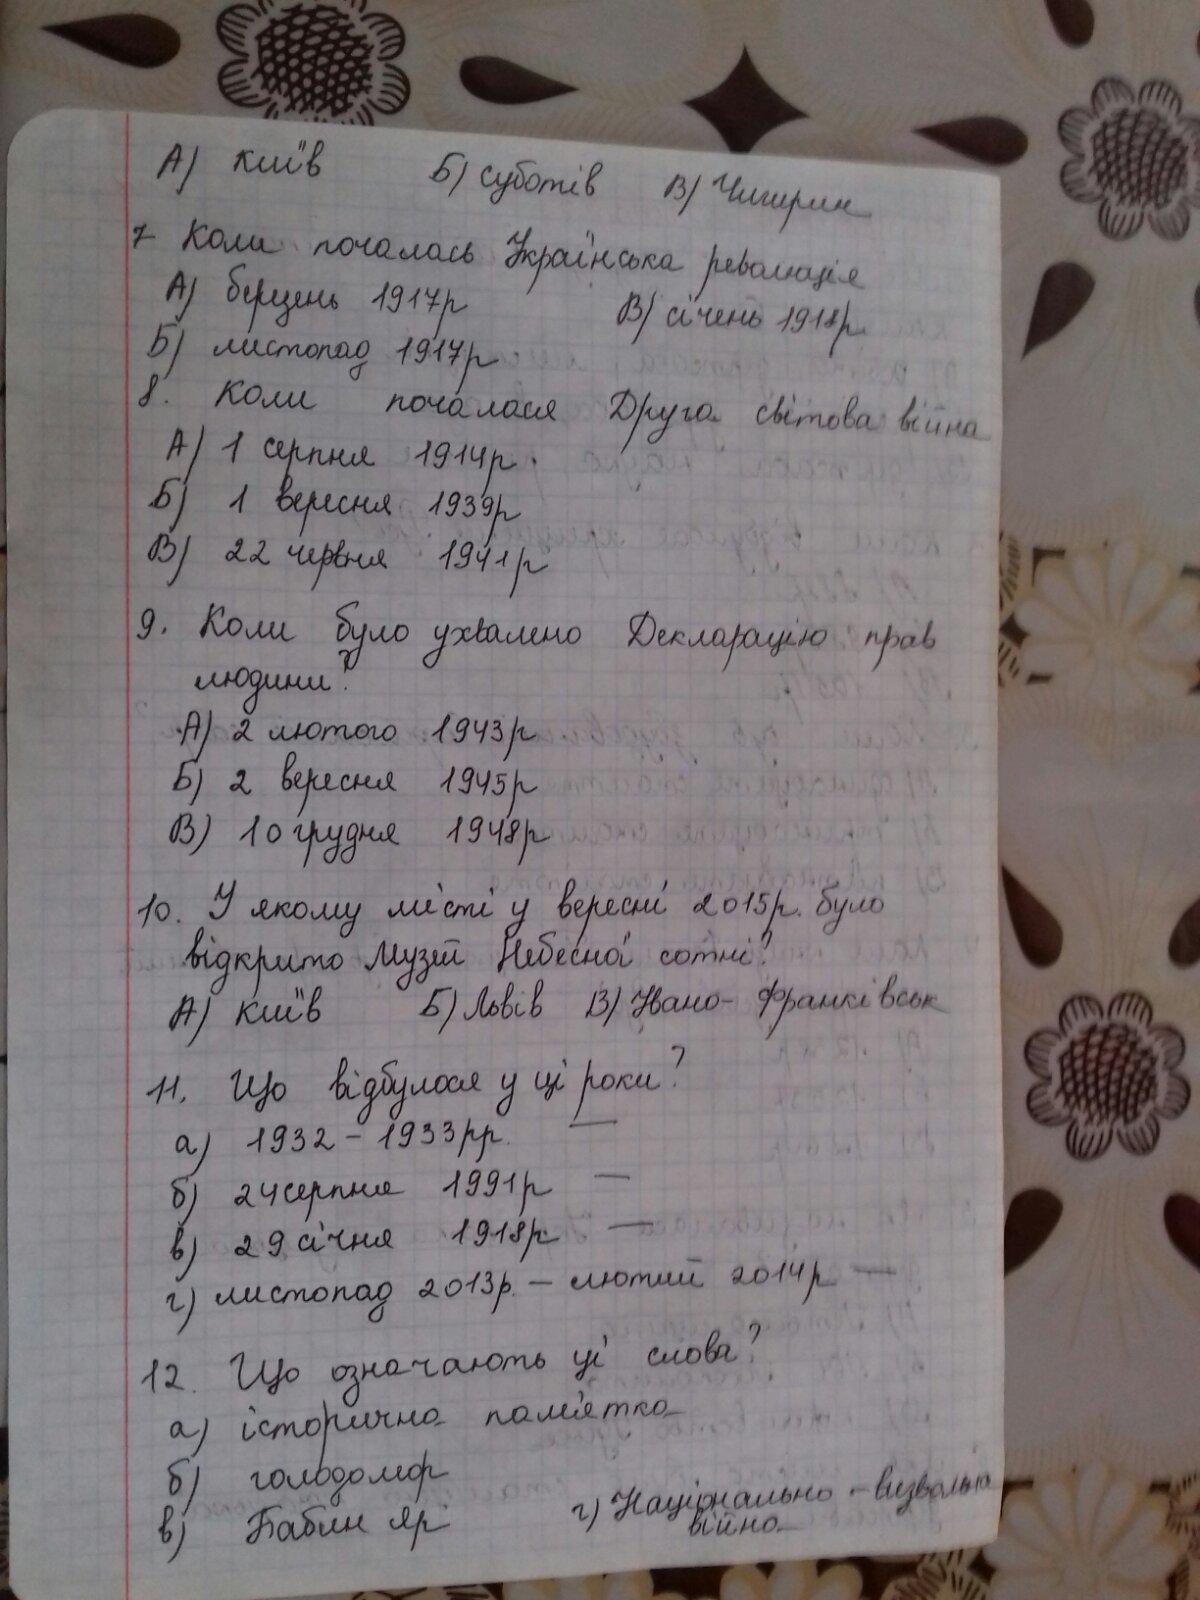 А) Київ Б) Суботів В) Чигирин
7 Коли почалась Українська революція
А) березень 1917р В) січень 1918р
Б) листопад 1917р
8. Коли почалася Друга світова війна
А) 1 серпня 1914р.
Б) 1 вересня 1939р
В) 22 червня 1941р
9. Коли було ухвалено Декларацію прав
людини?
А) 2 лютого 1943р
Б) 2 вересня 1945р
В) 10 грудня 1948р
10. У якому місті у вересні 2015р. було
відкрито Музей Небесної сотні?
А) Київ Б) Львів В) Івано-Франківськ
11. Що відбулося у ці роки?
а) 1932 – 1933рр. —
б) 24 серпня 1991р —
в) 29 січня 1918р —
г) листопад 2013р. – лютий 2014р —
12. Що означають ці слова?
а) історична пам'ятка
б) голодомор
в) Бабин яр г) Національно-визвольна
війна